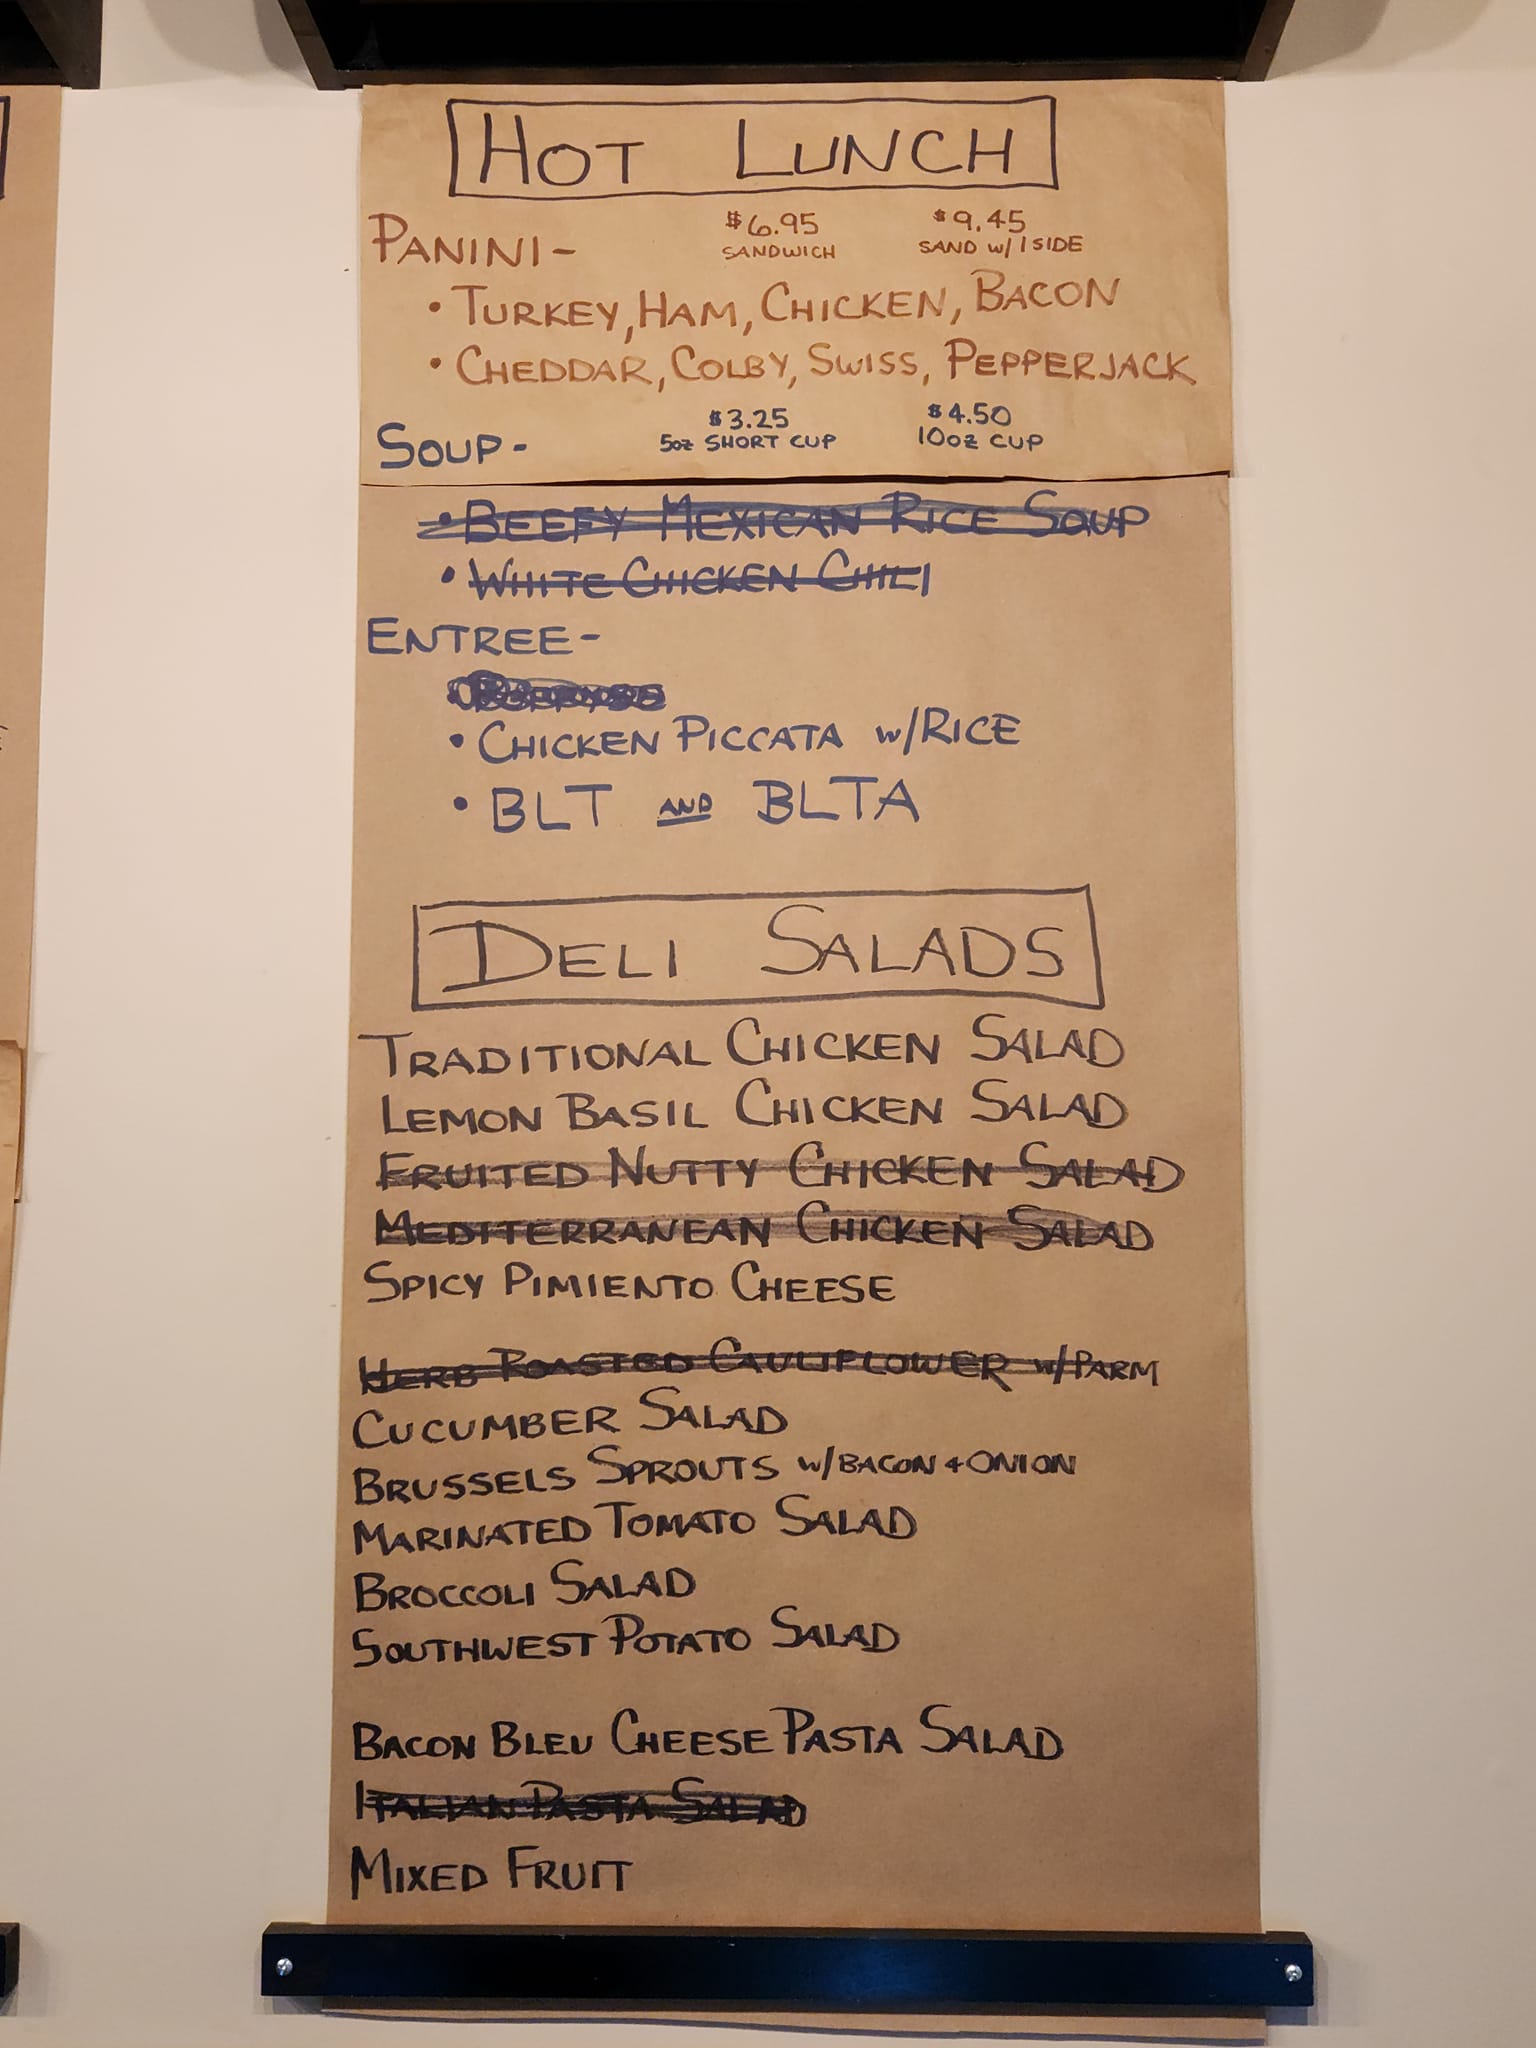 HOT LUNCH
PANINI- $6.95 SANDWICH $9.45 SAND w/ 1 SIDE
• TURKEY, HAM, CHICKEN, BACON
• CHEDDAR, COLBY, SWISS, PEPPERJACK
SOUP- $3.25 5oz SHORT CUP $4.50 10oz CUP
• BEEFY MEXICAN RICE SOUP
• WHITE CHICKEN CHILI
ENTREE-
• CHICKEN PICCATA w/RICE
• BLT AND BLTA
DELI SALADS
TRADITIONAL CHICKEN SALAD
LEMON BASIL CHICKEN SALAD
FRUITED NUTTY CHICKEN SALAD
MEDITERRANEAN CHICKEN SALAD
SPICY PIMIENTO CHEESE
HERB ROASTED CAULIFLOWER w/PARM
CUCUMBER SALAD
BRUSSELS SPROUTS w/BACON + ONION
MARINATED TOMATO SALAD
BROCCOLI SALAD
SOUTHWEST POTATO SALAD
BACON BLEU CHEESE PASTA SALAD
ITALIAN PASTA SALAD
MIXED FRUIT